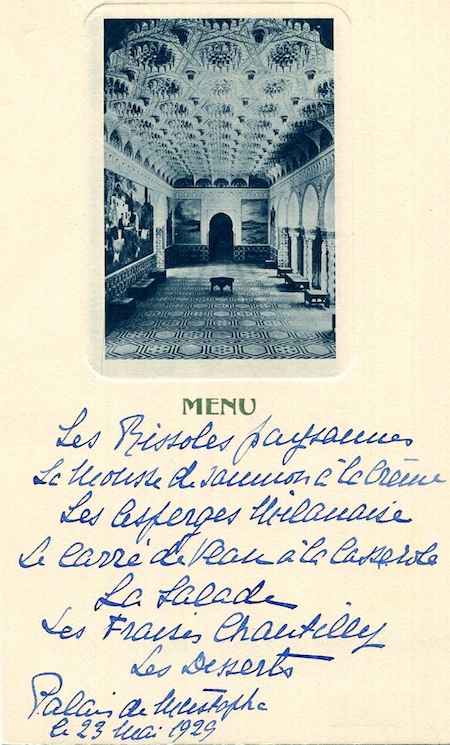 MENU
Les Rissoles paysannes
La Mousse de saumon à la Crème
Les Asperges Milanaise
Le Carré de Veau à la Casserole
La Salade
Les Fraises Chantilly
Les Desserts
Palais de Mustapha
le 23 Mai 1929